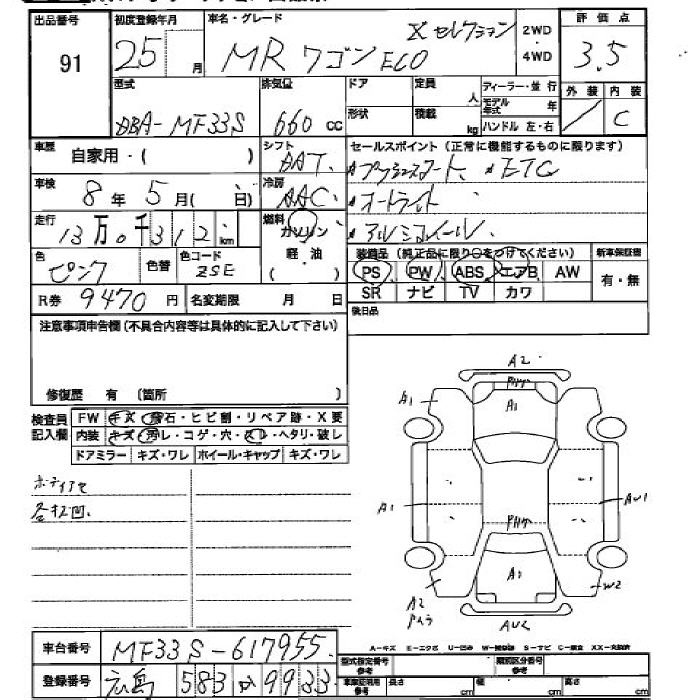 出品番号 91
初度登録年月 25 月
車名・グレード MRワゴン ECO Xセレクション
2WD・4WD
評価点 3.5
型式 DBA-MF33S
排気量 660 cc
ドア
形状
定員 人
積載 kg
ディーラー・並行
モデル年式 年
ハンドル 左・右
外装 内装
C
車歴 自家用・( )
シフト AT
セールスポイント(正常に機能するものに限ります)
プッシュスタート、ETC
オートライト
アルミホイール、
車検 8年5月( 日)
冷房 AAC
走行 13万0千312km
燃料 ガソリン・軽油( )
色 ピンク
色替
色コード ZSE
装備品(純正品に限り○をつけてください)
新車保証書
PS PW ABS エアB AW
有・無
SR ナビ TV カワ
R券 9470円
名変期限 月 日
後日品
注意事項申告欄(不具合内容等は具体的に記入して下さい)
修復歴 有 〔箇所 〕
検査員記入欄
FW キズ・飛石・ヒビ割・リペア跡・X要
内装 キズ・汚レ・コゲ・穴・スレ・ヘタリ・破レ
ドアミラー キズ・ワレ ホイール・キャップ キズ・ワレ
A2
A1
A1
A1
AU1
A1
W2
A2
AU2
車台番号 MF33S-617955
登録番号 広島 583 か 9933
A-キズ E-エクボ U-凹み S-サビ
型式指定番号 参考
類別区分番号 参考
長さ cm 幅 cm 高さ cm